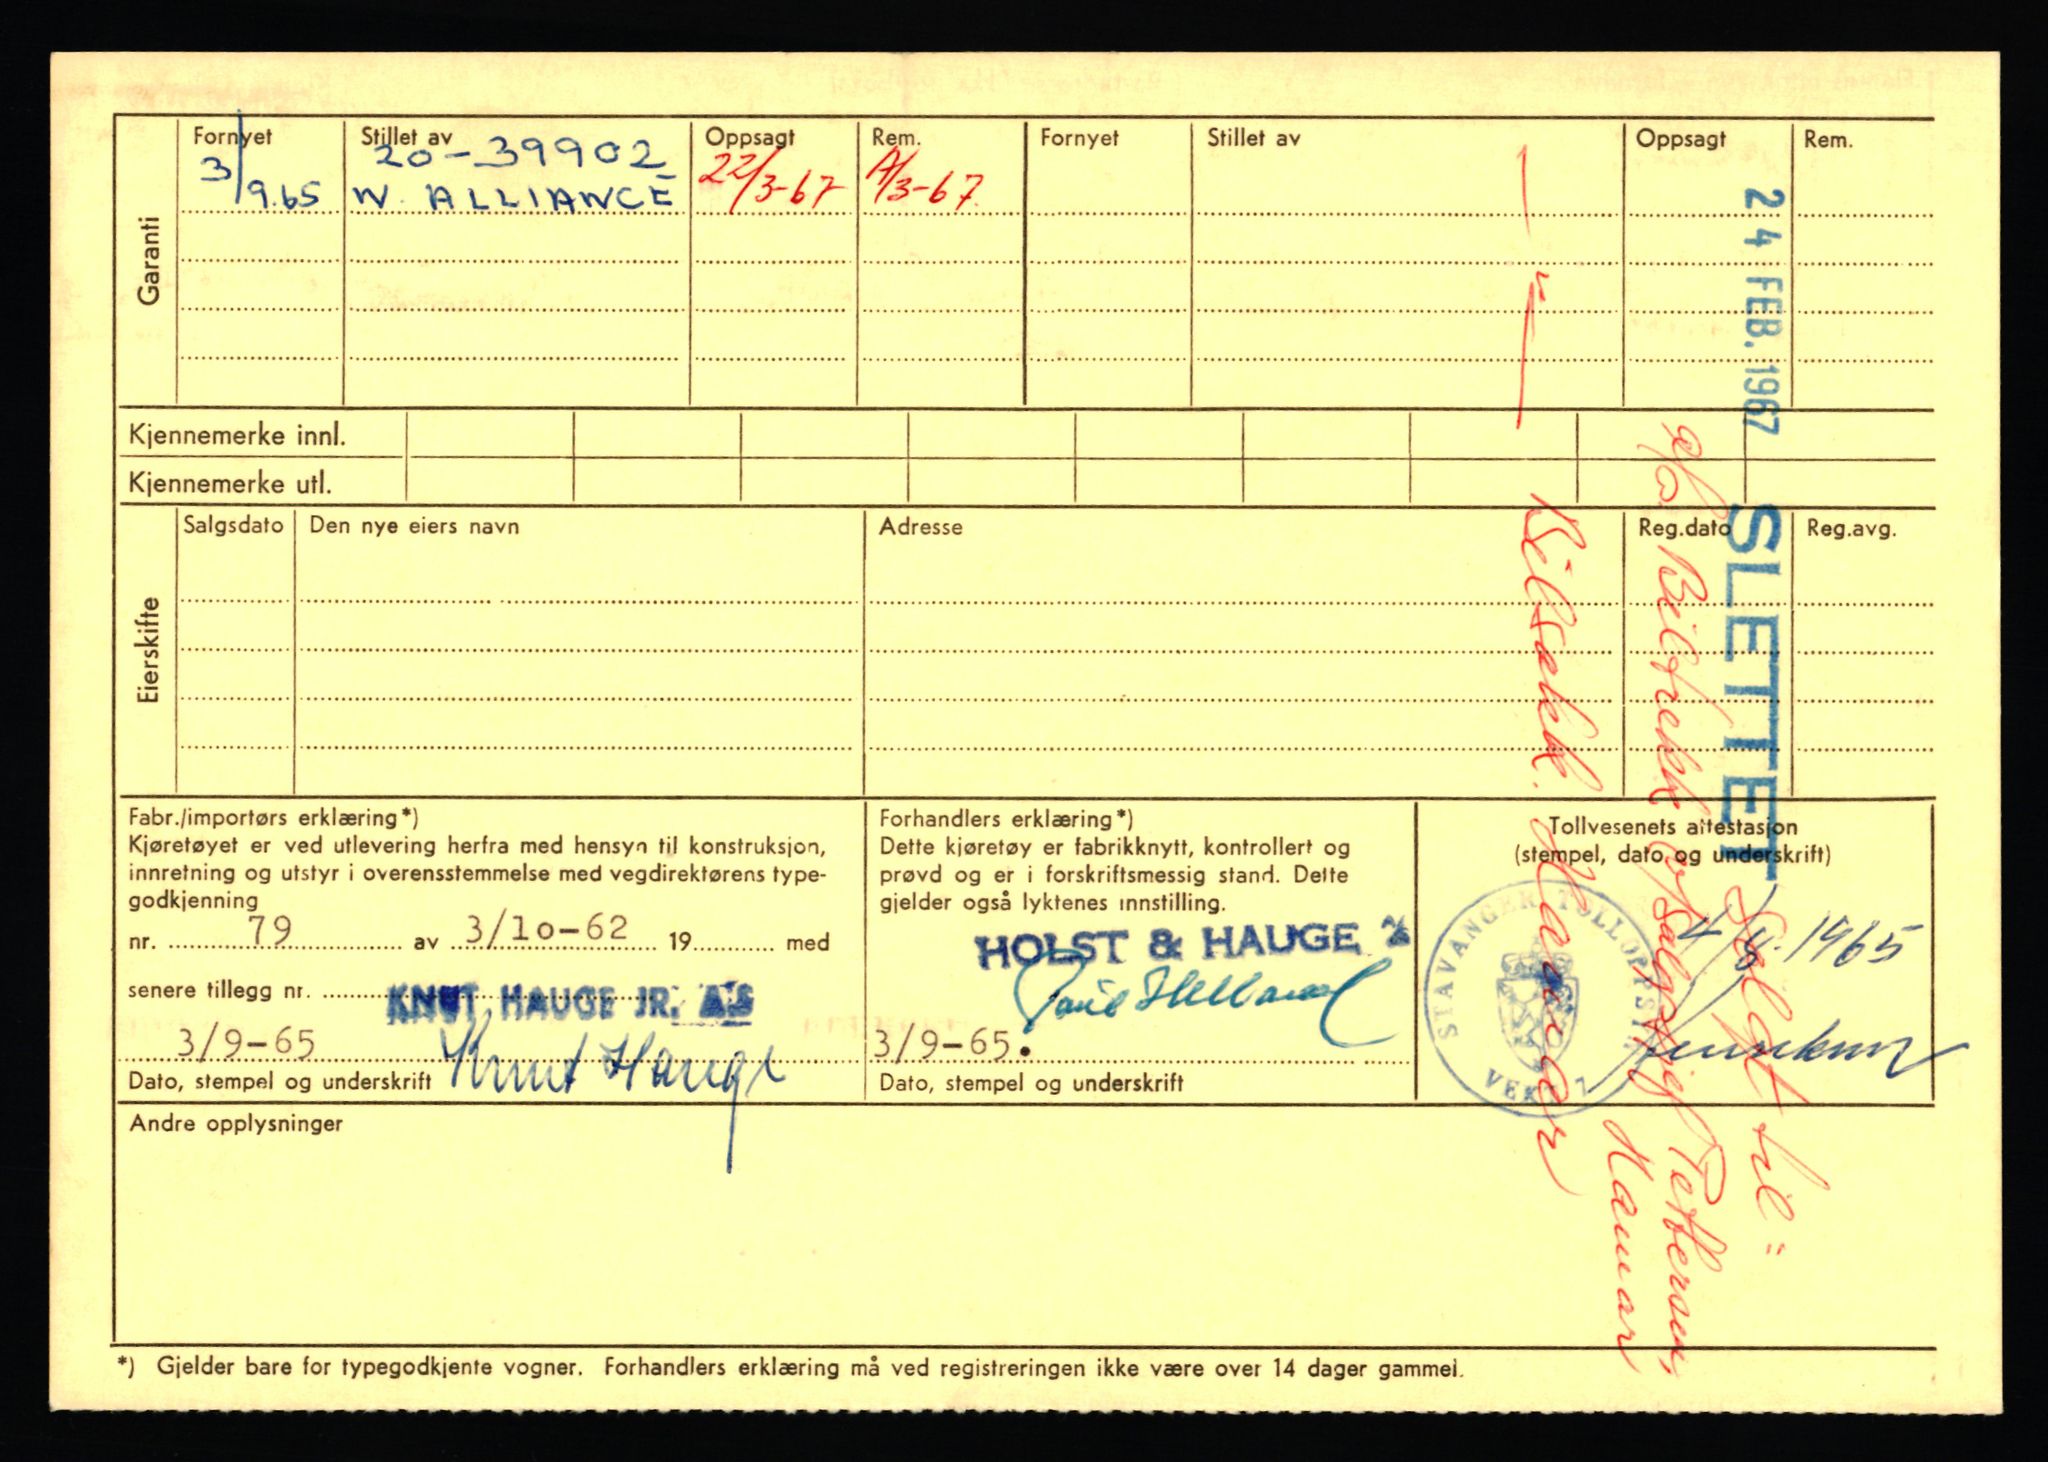 Garanti
Fornyet
Stillet av
Oppsagt
Rem.
Fornyet
Stillet av
Oppsagt
Rem.
3/9.65
20-39902
W. ALLIANCE
22/3-67
A/3-67
24 FEB. 1967
SLETTET
Kjennemerke innl.
Kjennemerke utl.
Eierskifte
Salgsdato
Den nye eiers navn
Adresse
Reg.dato
Reg.avg.
Fabr./importørs erklæring*)
Kjøretøyet er ved utlevering herfra med hensyn til konstruksjon,
innretning og utstyr i overensstemmelse med vegdirektørens type-
godkjenning
nr. 79 av 3/10-62 19 med
senere tillegg nr.
KNUT HAUGE JR. A/S
3/9-65
Knut Hauge
Dato, stempel og underskrift
Forhandlers erklæring*)
Dette kjøretøy er fabrikknytt, kontrollert og
prøvd og er i forskriftsmessig stand. Dette
gjelder også lyktenes innstilling.
HOLST & HAUGE
3/9-65.
Dato, stempel og underskrift
Tollvesenets attestasjon
(stempel, dato og underskrift)
STAVANGER TOLLOPPSYN
VEKT 7
1965
Solgt til:
Biltrekk Pettersen,
Hamar
Bilsakk. Hamar
Andre opplysninger
*) Gjelder bare for typegodkjente vogner. Forhandlers erklæring må ved registreringen ikke være over 14 dager gammel.